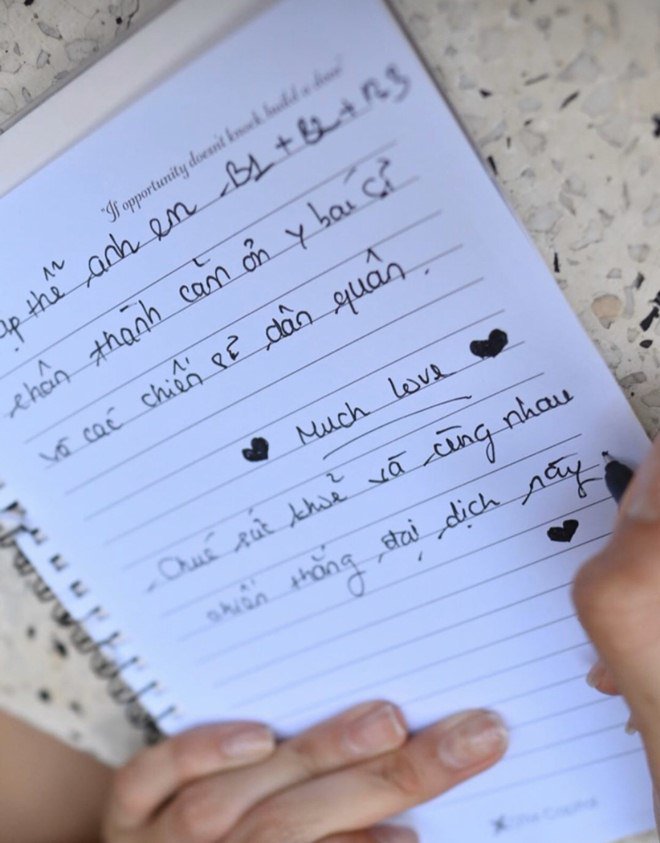 "If opportunity doesn't knock build a door"
ập thể anh em B1 + B2 + B3
chân thành cảm ơn y bác sĩ
và các chiến sĩ dân quân.
♥ Much love ♥
Chúc sức khoẻ và cùng nhau
chiến thắng đại dịch này
♥